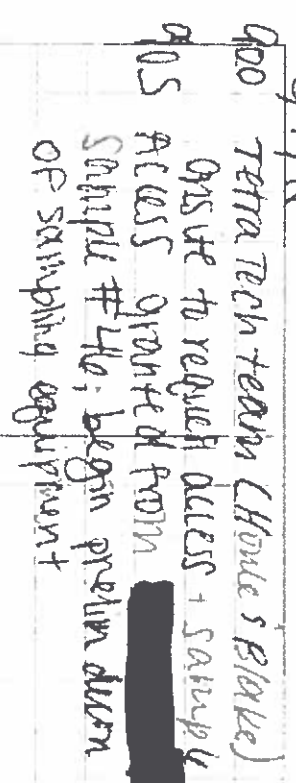 900 Tetra Tech team (Howe & Blake)
onsite to request access + sample
905 Access granted from
sample #46; begin prelim decon
of sampling equipment